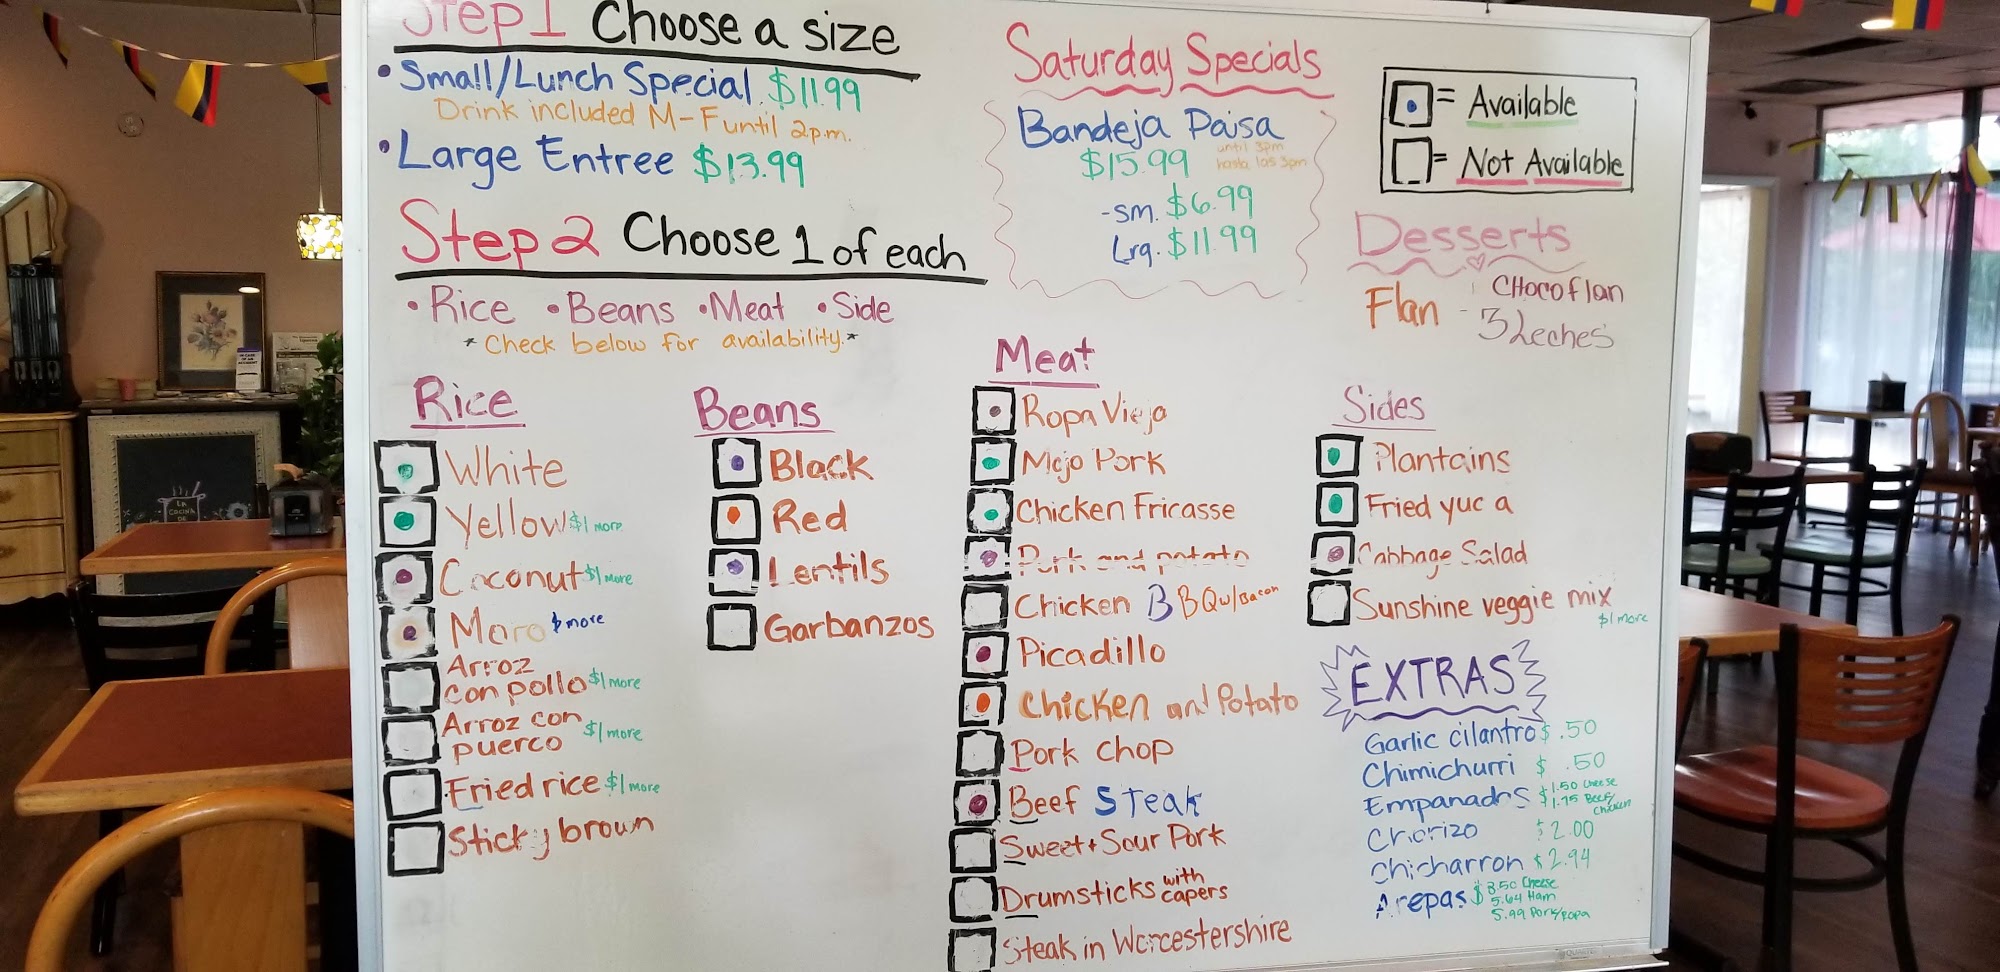 Step 1 Choose a size
• Small/Lunch Special $11.99
Drink included M-F until 2p.m.
• Large Entree $13.99
Step 2 Choose 1 of each
• Rice • Beans • Meat • Side
* Check below for availability.*
Rice
White
Yellow $1 more
Coconut $1 more
Moro $ more
Arroz
con pollo $1 more
Arroz con
puerco $1 more
Fried rice $1 more
Sticky brown
Beans
Black
Red
Lentils
Garbanzos
Saturday Specials
Bandeja Paisa
$15.99 until 3pm
hasta las 3pm
-sm. $6.99
Lrg. $11.99
Meat
Ropa Vieja
Mojo Pork
Chicken Fricasse
Pork and potato
Chicken BBQ w/Bacon
Picadillo
Chicken and Potato
Pork chop
Beef Steak
Sweet + Sour Pork
Drumsticks with capers
Steak in Worcestershire
= Available
= Not Available
Desserts
Flan - Chocoflan
3 Leches
Sides
Plantains
Fried yuca
Cabbage Salad
Sunshine veggie mix
$1 more
EXTRAS
Garlic cilantro $.50
Chimichurri $ .50
Empanadas $1.50 Cheese
$1.75 Beef/
Chicken
Chorizo $2.00
Chicharron $2.94
Arepas $3.50 Cheese
5.64 Ham
5.99 Pork/Ropa
LA
COCINA
DE